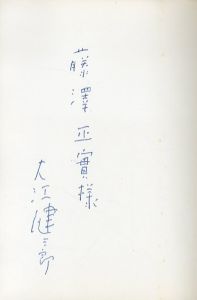 藤澤正實様
大江健三郎